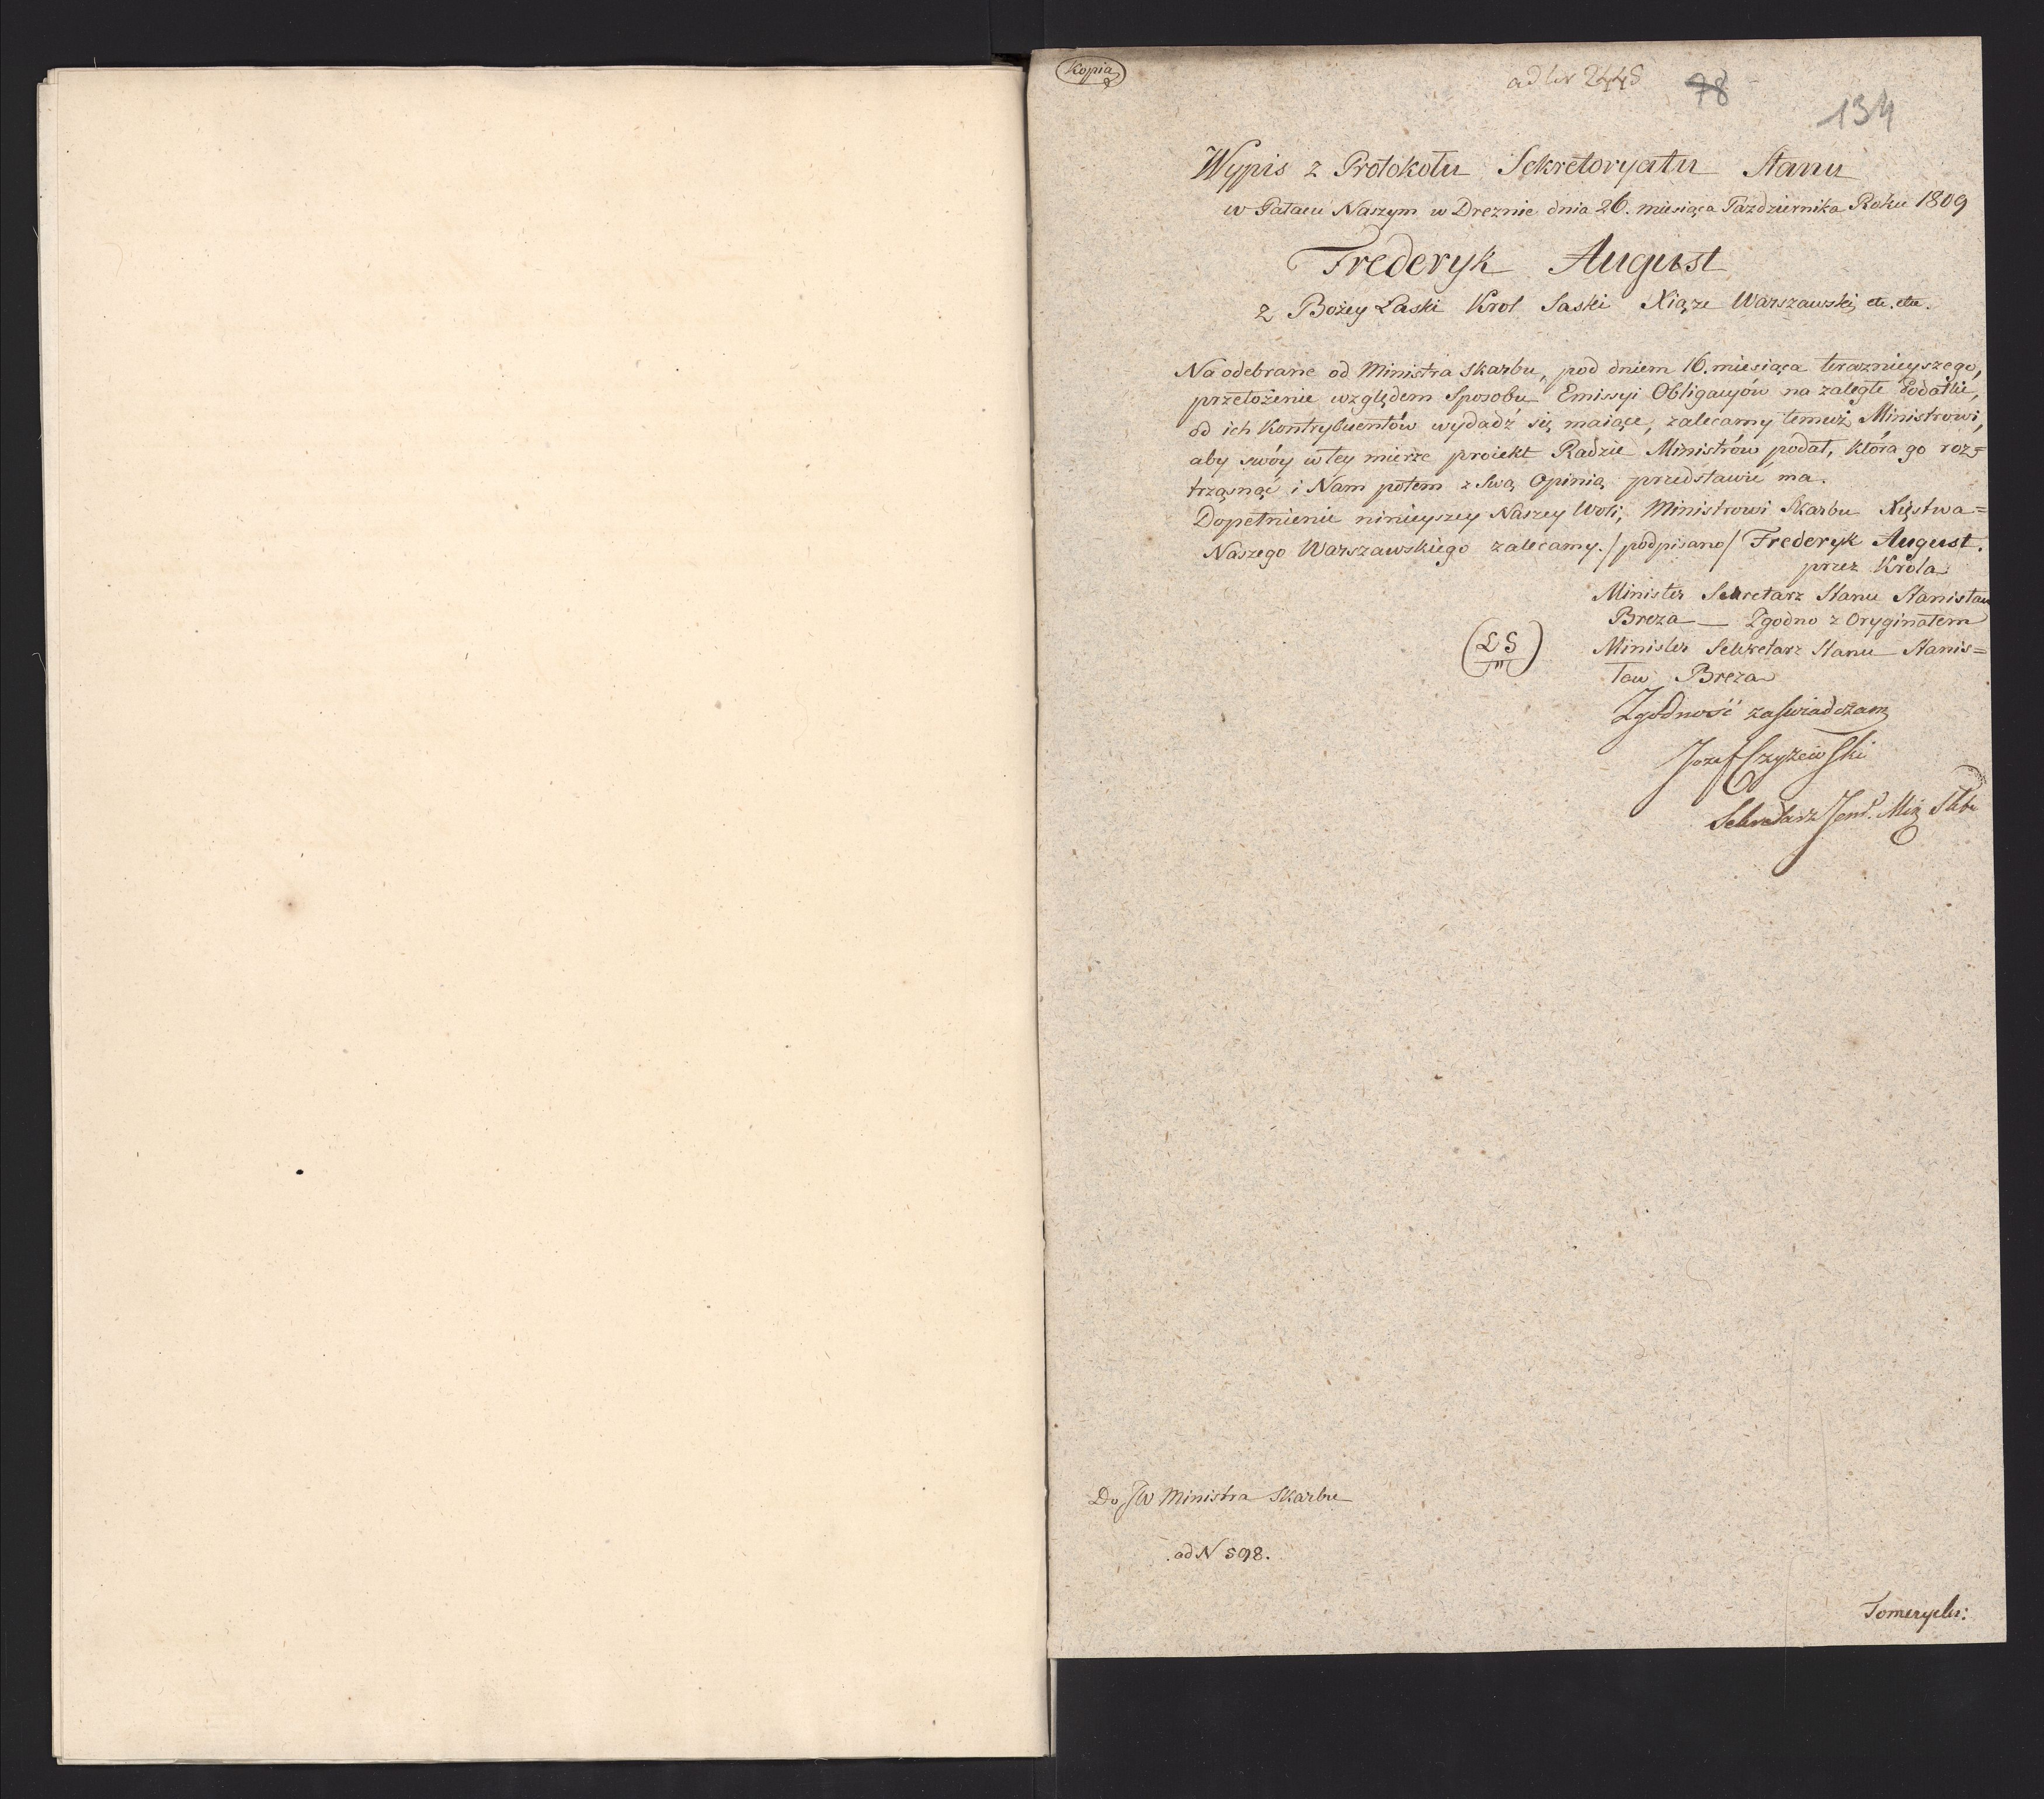 Kopia
ad Nr 2448
78
134
Wypis z Protokołu Sekretoryatu Stanu
w Pałacu Naszym w Dreznie dnia 26. miesiąca Pazdziernika Roku 1809
Frederyk August
z Bożey Łaski Krol Saski Xiąże Warszawski, etc. etc.
Na odebrane od Ministra Skarbu, pod dniem 16. miesiąca teraznieyszego,
przełożenie względem Sposobu Emissyi Obligacyów na zaległe Podatki,
od ich Kontrybuentów wydadź się maiące, zalecamy temuż Ministrowi,
aby swóy w tey mierze proiekt Radzie Ministrów podał, która go roz=
trząsnąć i Nam potem z Swą Opinią przedstawić ma.
Dopełnienie ninieyszey Naszey Woli, Ministrowi Skarbu Xięstwa=
Naszego Warszawskiego zalecamy. /podpisano/ Frederyk August.
przez Króla
Minister Sekretarz Stanu Stanisław
Breza — Zgodno z Oryginałem
(LS)
Minister Sekretarz Stanu Stanis=
ław Breza
Zgodność zaświadczam
Jozef Czyżewski
Sekretarz Jenl. Min Skbu
Do JW Ministra Skarbu
ad N 598.